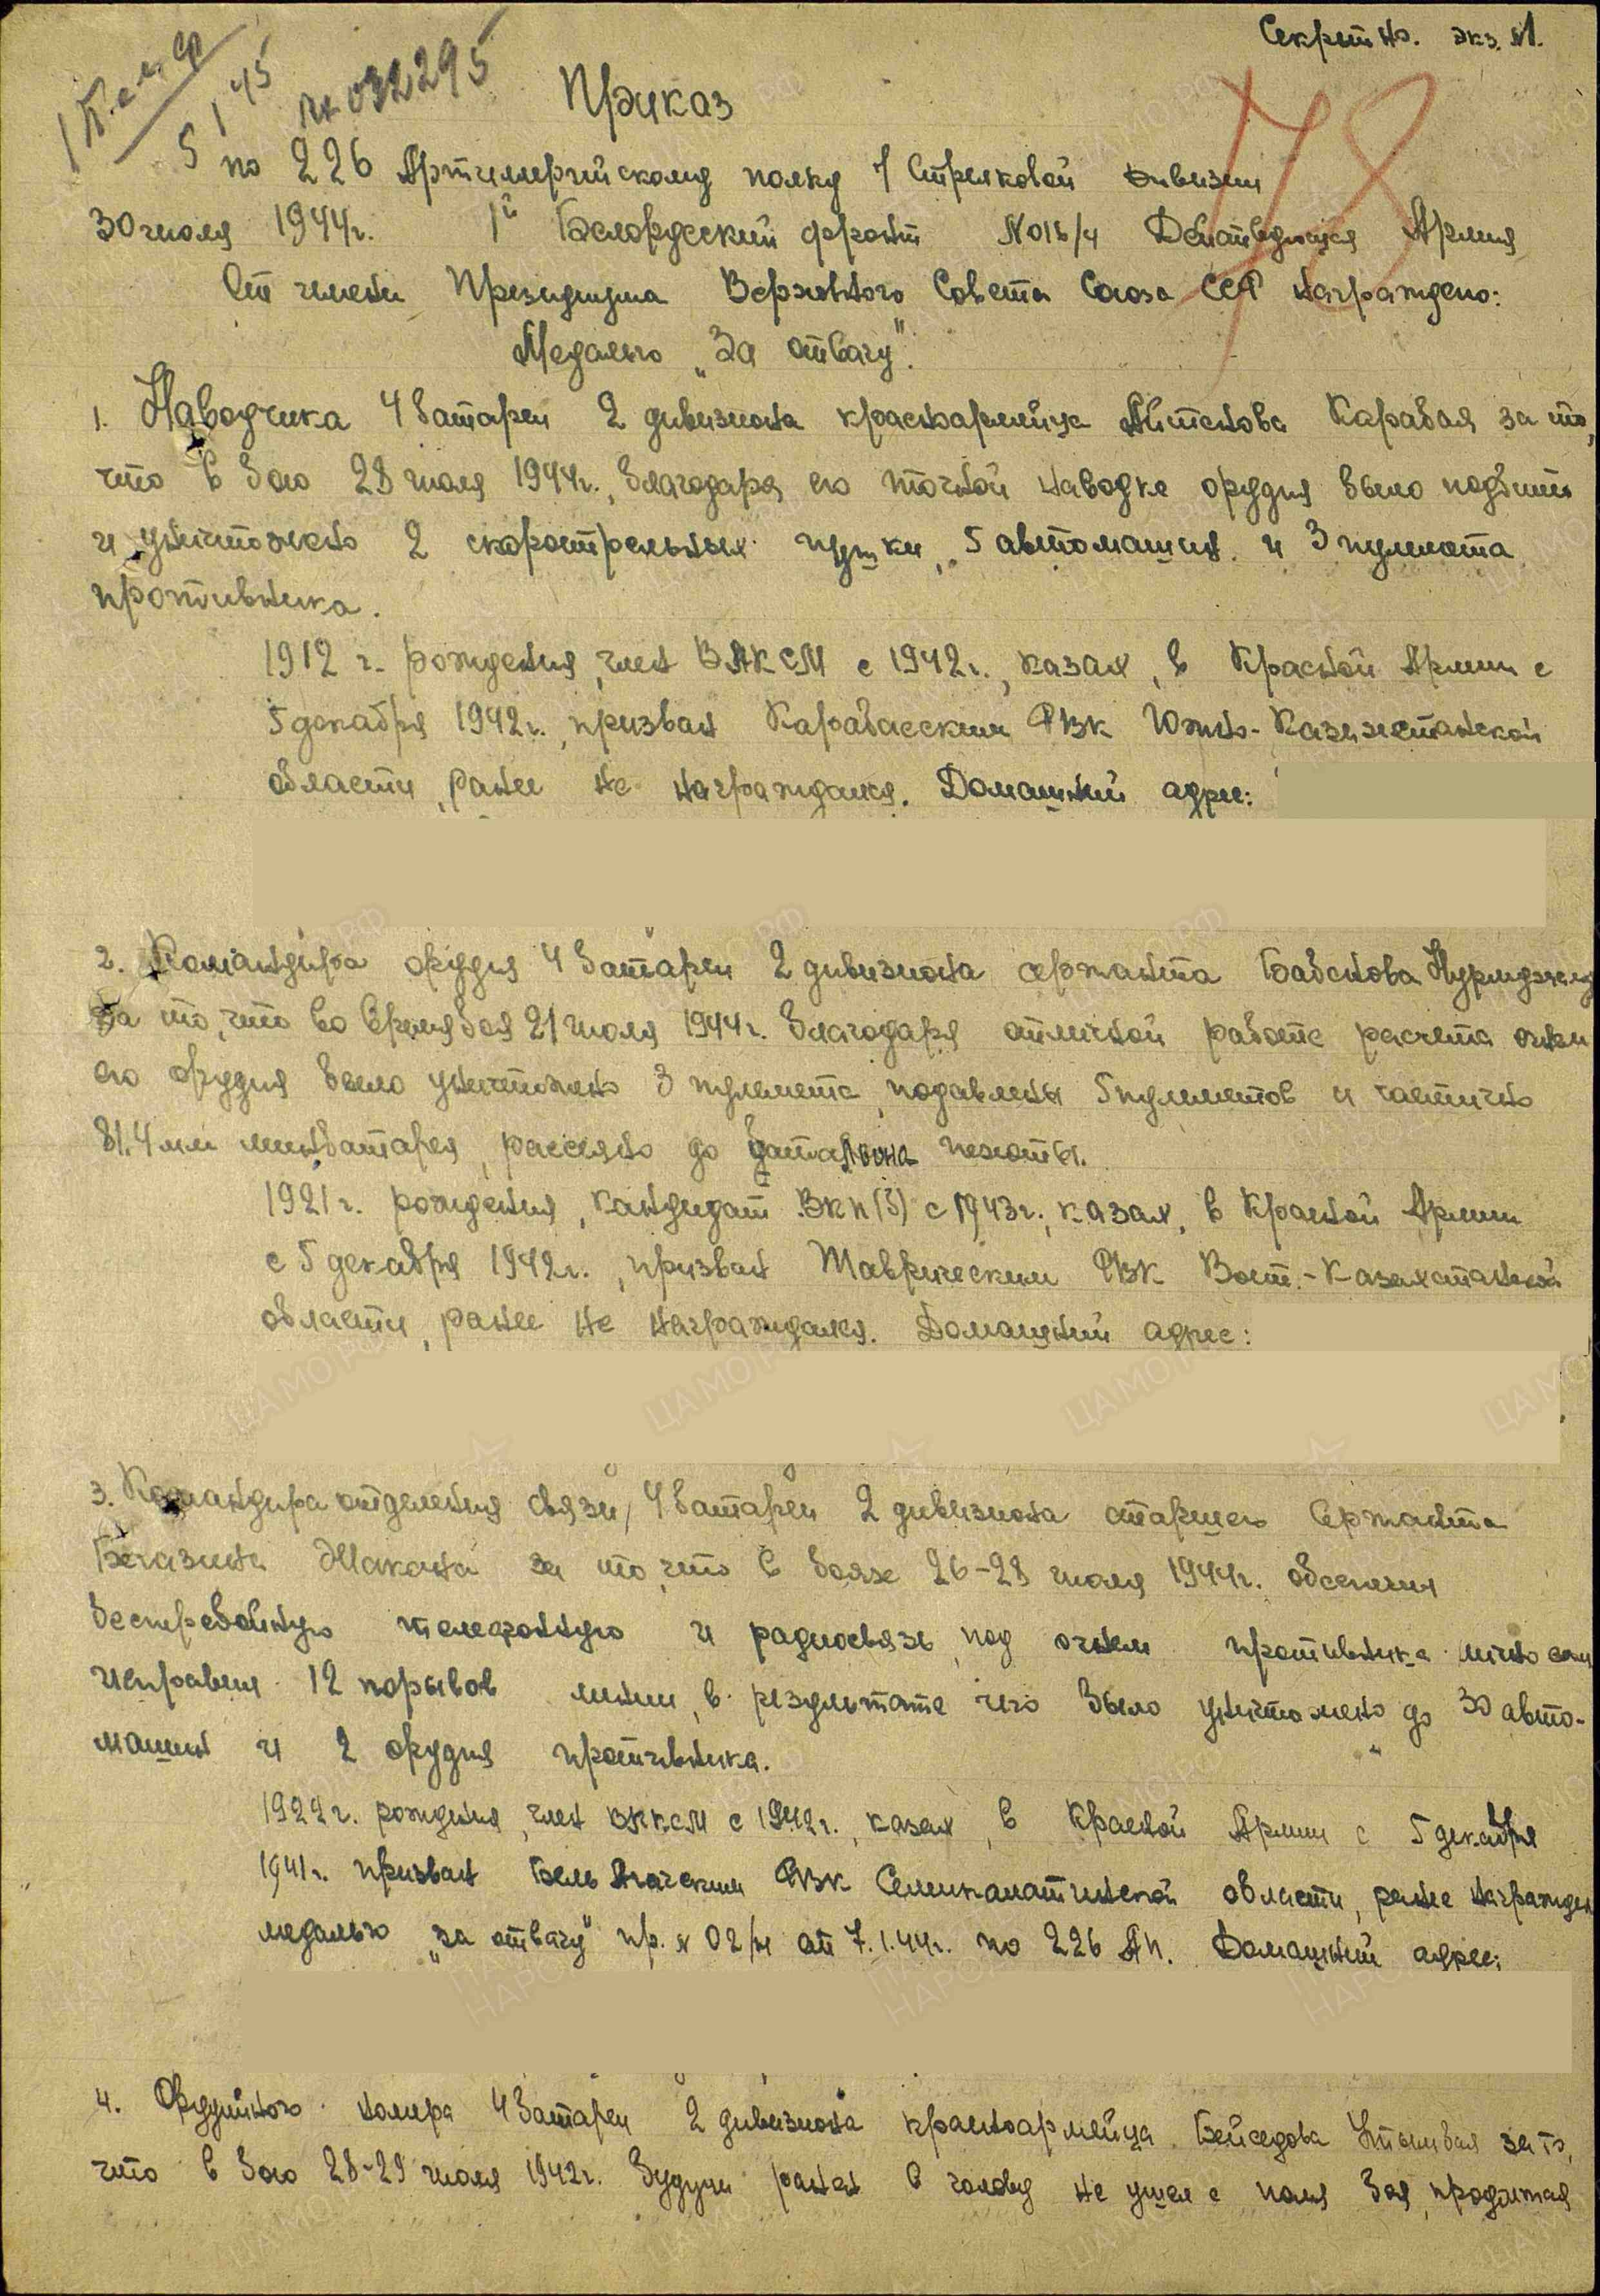 Секретно. экз. №1.
5 1 45 вх 032295
Приказ
78
по 226 Артиллерийскому полку 7 Стрелковой дивизии
30 июля 1944г. 1й Белорусский фронт №016/н Действующая Армия
От имени Президиума Верховного Совета Союза ССР награждено:
Медалью „За отвагу".
1. Наводчика 4 батареи 2 дивизиона красноармейца Айтенова Карабая за то,
что в бою 28 июля 1944г., благодаря его точной наводке орудия было подбито
и уничтожено 2 скорострельных пушки, 5 автомашин и 3 пулемета
противника.
1912 г. рождения, член ВЛКСМ с 1942г., казах, в Красной Армии с
5 декабря 1942г., призван Карабасским РВК Южно-Казахстанской
области, ранее не награждался. Домашний адрес:
2. Командира орудия 4 батареи 2 дивизиона сержанта Бабенова
за то, что во время боя 21 июля 1944г. благодаря отличной работе расчета огнем
его орудия было уничтожено 3 пулемета, подавлены 5 пулеметов и частично
81,4 мм минбатарея, рассеяно до батальона пехоты.
1921г. рождения, кандидат ВКП(б) с 1943г., казах, в Красной Армии
с 5 декабря 1942г., призван Таврическим РВК Вост.-Казахстанской
области, ранее не награждался. Домашний адрес:
3. Командира отделения связи, 4 батареи 2 дивизиона старшего Сержанта
Бегазина Жакана за то, что в боях 26-28 июля 1944г. обеспечил
бесперебойную телефонную и радиосвязь, под огнем противника лично сам
исправил 12 порывов линии, в результате чего было уничтожено до 30 авто-
машин и 2 орудия противника.
1922г. рождения, член ВЛКСМ с 1942г., казах, в Красной Армии с 5 декабря
1941г. призван Бель Агачским РВК Семипалатинской области, ранее награжден
медалью „за отвагу" пр. № 02/н от 7.1.44г. по 226 АП. Домашний адрес:
4. Орудийного номера 4 батареи 2 дивизиона красноармейца Бейседова за то,
что в бою 28-29 июля 1942г. будучи ранен в голову не ушел с поля боя, продолжая